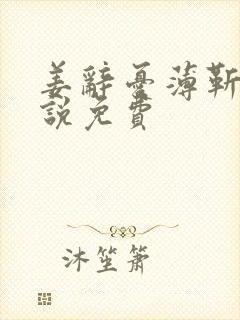 姜辭憂薄靳
說免費
沐笙簫